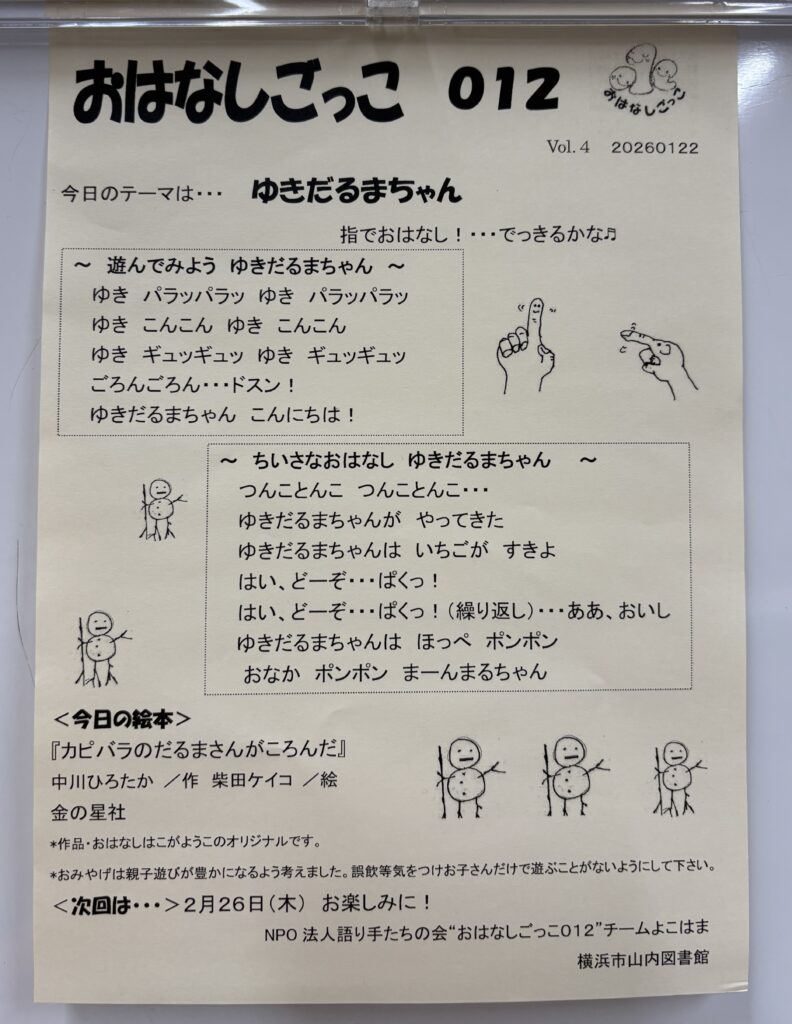 おはなしごっこ 012
おはなしごっこ
Vol. 4 20260122
今日のテーマは・・・ ゆきだるまちゃん
指でおはなし！・・・でっきるかな♬
～ 遊んでみよう ゆきだるまちゃん ～
ゆき パラッパラッ ゆき パラッパラッ
ゆき こんこん ゆき こんこん
ゆき ギュッギュッ ゆき ギュッギュッ
ごろんごろん・・・ドスン！
ゆきだるまちゃん こんにちは！
～ ちいさなおはなし ゆきだるまちゃん ～
つんことんこ つんことんこ・・・
ゆきだるまちゃんが やってきた
ゆきだるまちゃんは いちごが すきよ
はい、どーぞ・・・ぱくっ！
はい、どーぞ・・・ぱくっ！（繰り返し）・・・ああ、おいし
ゆきだるまちゃんは ほっぺ ポンポン
おなか ポンポン まーんまるちゃん
＜今日の絵本＞
『カピバラのだるまさんがころんだ』
中川ひろたか ／作 柴田ケイコ ／絵
金の星社
*作品・おはなしはこがようこのオリジナルです。
*おみやげは親子遊びが豊かになるよう考えました。誤飲等気をつけお子さんだけで遊ぶことがないようにして下さい。
＜次回は・・・＞2月26日（木） お楽しみに！
NPO 法人語り手たちの会“おはなしごっこ012”チームよこはま
横浜市山内図書館